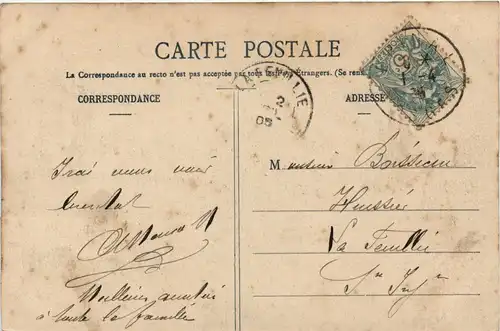 CARTE POSTALE
La Correspondance au recto n'est pas acceptée par tous les Pays Étrangers. (Se rens
CORRESPONDANCE
ADRESSE
LA FEUILLIE
2
05
Irai vous voir
Monsieur
Huissier
La Feuillie
Sne Infre
Meilleures amitiés
à toute la famille